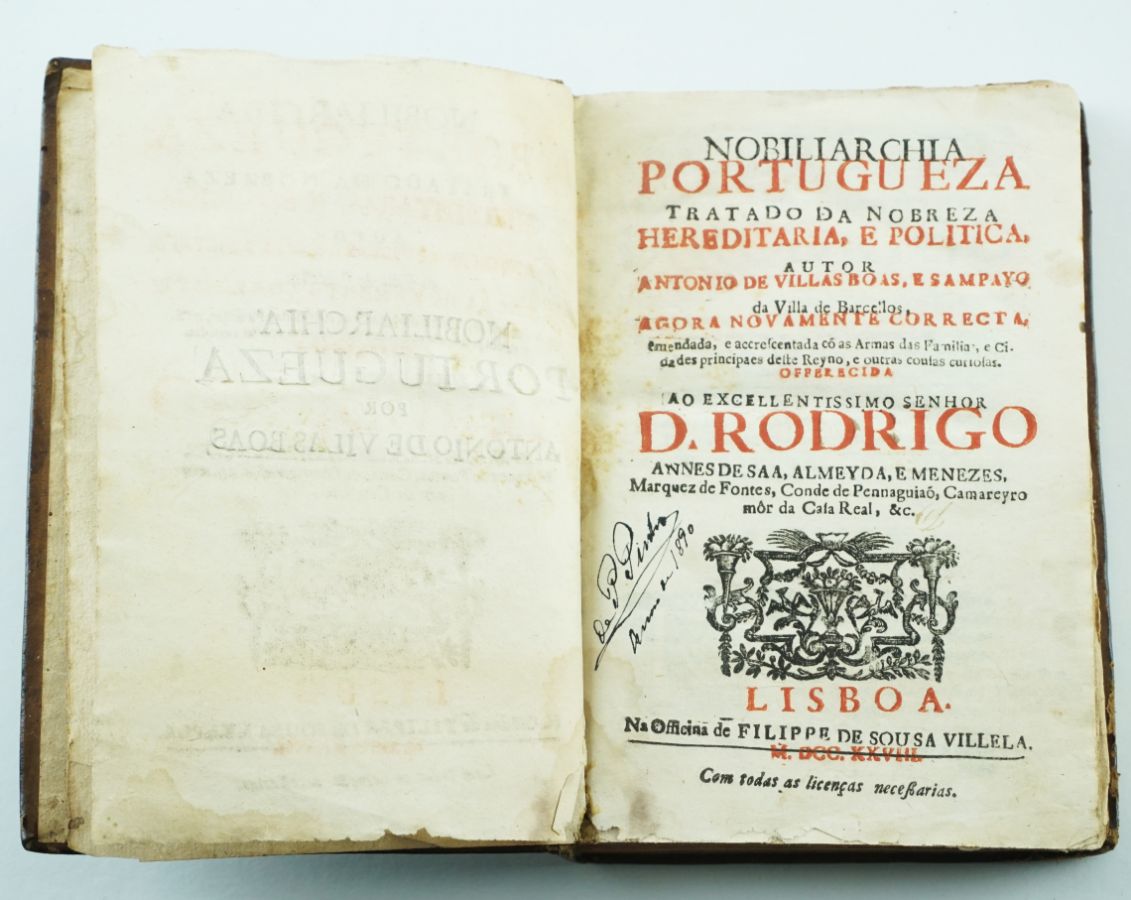 NOBILIARCHIA
PORTUGUEZA
POR
ANTONIO DE VILAS BOAS,
NOBILIARCHIA
PORTUGUEZA
TRATADO DA NOBREZA
HEREDITARIA, E POLITICA,
AUTOR
ANTONIO DE VILLAS BOAS, E SAMPAYO
da Villa de Barcellos,
AGORA NOVAMENTE CORRECTA,
emendada, e accrescentada cõ as Armas das Familias, e Ci-
dades principaes deste Reyno, e outras cousas curiosas.
OFFERECIDA
AO EXCELLENTISSIMO SENHOR
D. RODRIGO
ANNES DE SAA, ALMEYDA, E MENEZES,
Marquez de Fontes, Conde de Pennaguiaõ, Camareyro
môr da Casa Real, &c.
de P. Pinho
anno de 1890
LISBOA.
Na Officina de FILIPPE DE SOUSA VILLELA.
M. DCC. XXVIII.
Com todas as licenças necessarias.